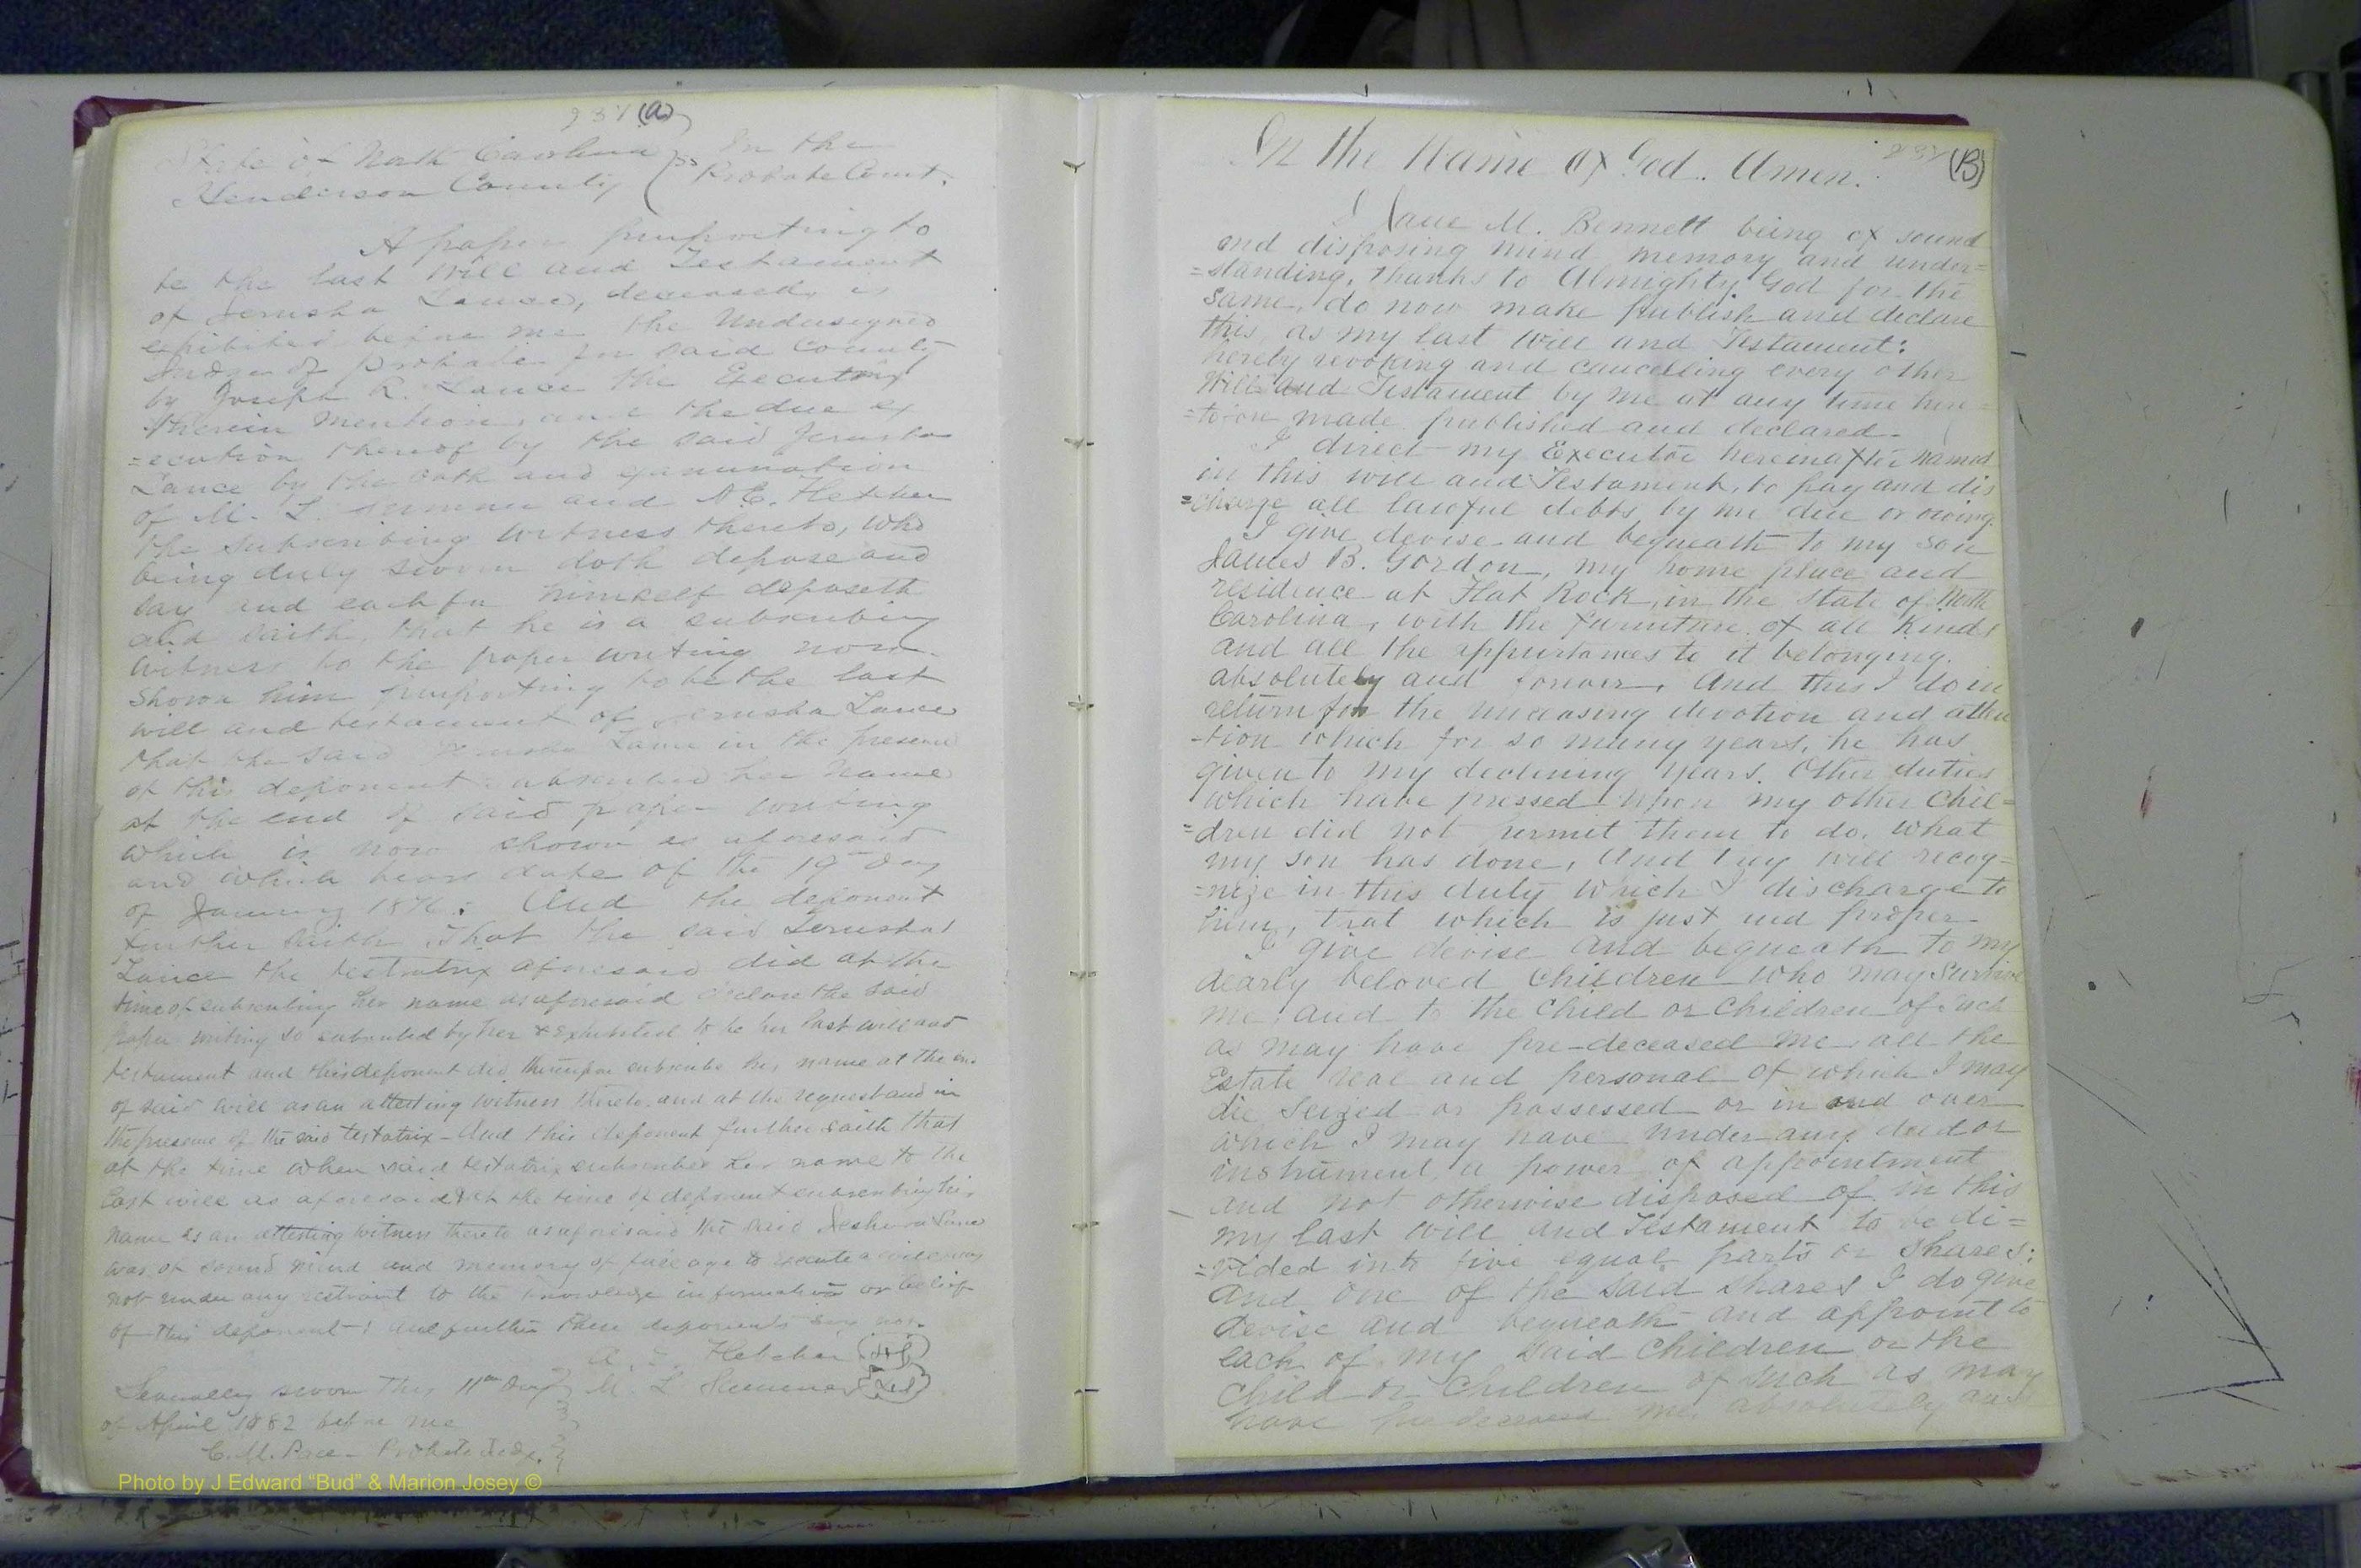 237 (a)
State of North Carolina } ss In the
Henderson County } Probate Court.
A paper purporting to
be the last will and Testament
of Jerusha Lance, deceased, is
exhibited before me the Undersigned
Judge of Probate for said County
by Joseph R. Lance the Executor
therein mention and the due ex
=ecution thereof by the said Jerusha
Lance by the oath and examination
of M. L. Sumner and A. E. Fletcher
the subscribing witness thereto, who
being duly sworn doth depose and
say and each for himself deposeth
and saith, that he is a subscribing
witness to the paper writing now
shown him purporting to be the last
will and testament of Jerusha Lance
that the said Jerusha Lance in the presence
of this deponent subscribed her Name
at the end of said paper writing
which is now shown as aforesaid
and which bears date of the 19th day
of January 1876: And the deponent
further saith that the said Jerusha
Lance the testatrix aforesaid did at the
time of subscribing her name as aforesaid declare the said
paper writing so subscribed by her & exhibited to be her last will and
testament and this deponent did thereupon subscribe his name at the en.
of said will as an attesting witness thereto, and at the request and in
the presence of the said testatrix - And this deponent further saith that
at the time when said testatrix subscribed her name to the
last will as aforesaid & at the time of deponent subscribing his
name as an attesting witness thereto as aforesaid the said Lance
was of sound mind and memory of full age to execute a will & was
not under any restraint to the knowledge information or belief
of this deponent: and further these deponents say not.
A. E. Fletcher
Severally sworn this 11th day } M. L. Sumner
of April 1882 before me
C. M. Pace - Probate Judge.
Photo by J Edward “Bud” & Marion Josey ©
In the Name of God. Amen. 237 (B)
I Jane M. Bennett being of sound
and disposing mind memory and under=
=standing, thanks to Almighty God for the
same, do now make publish and declare
this, as my last Will and Testament:
hereby revoking and cancelling every other
Will and Testament by me at any time here=
=tofore made published and declared.
I direct my Executor hereinafter named
in this will and Testament, to pay and dis
=charge all lawful debts by me due or owing.
I give devise and bequeath to my son
James B. Gordon, my home place and
residence at Flat Rock, in the State of North
Carolina, with the furniture of all kinds
and all the appurtances to it belonging.
absolutely and forever. And this I do in
return for the unceasing devotion and atten
-tion which for so many years, he has
given to my declining years. Other duties
which have pressed upon my other chil=
=dren did not permit them to do, what
my son has done, and they will recog=
=nize in this duty which I discharge to
him, that which is just and proper
I give devise and bequeath to my
dearly beloved Children who may survive
me, and to the child or children of such
as may have pre-deceased me, all the
Estate real and personal of which I may
die seized or possessed or in and over
which I may have under any deed or
instrument, a power of appointment
and not otherwise disposed of in this
my last Will and Testament to be di=
=vided into five equal parts or shares:
and one of the said shares I do give
devise and bequeath and appoint to
each of my said children or the
child or children of such as may
have pre deceased me, absolutely and